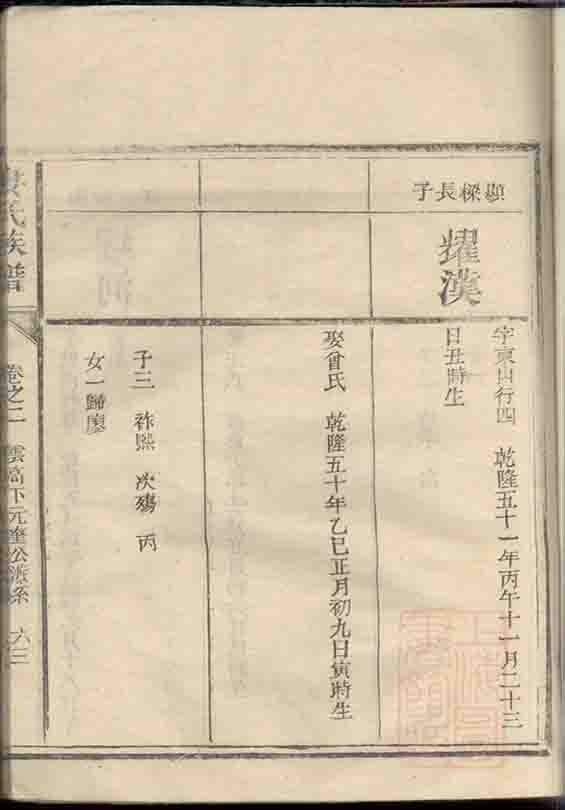 顯樑長子
耀漢
字東山行四 乾隆五十一年丙午十一月二十三
日丑時生
娶曾氏 乾隆五十年乙巳正月初九日寅時生
子三 祚熙 次殤 丙
女一歸廖
氏族譜
卷之二 雲高下元奎公派系 六三